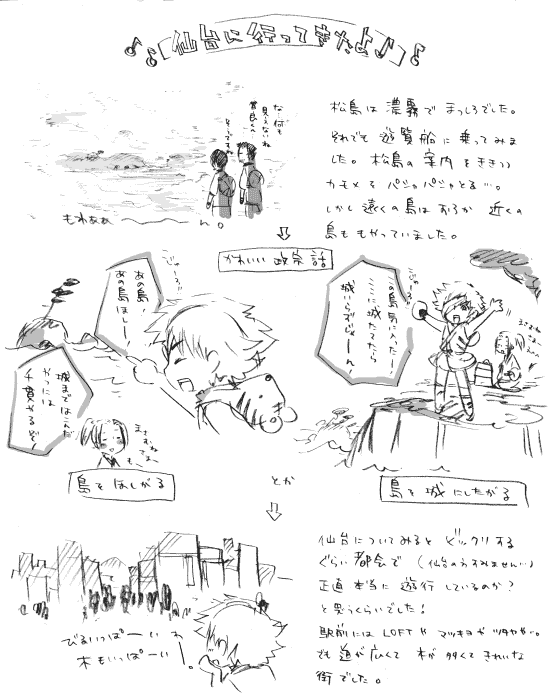 仙台に行ってきたよ♪
松島は濃霧でまっしろでした。
それでも遊覧船に乗ってみま
した。松島の案内をききつつ
カモメをパシャパシャとる…。
しかし遠くの島はおろか 近くの
島ももやっていました。
な…何も
見えないね
そうですね
もわあぁ
ん。
かわいい政宗話
あの島！
あの島ほしー！
城まではこんだ
やつには
千貫やるぞ！
まさむねさまー
島をほしがる
この島気に入ったー！
ここに城たてたら
城いらずじゃーん！
まさむねさまぁ
島を城にしたがる
とか
仙台についてみるとビックリする
ぐらい都会で（仙台の方すみません…）
正直本当に遊行しているのか？
と思うくらいでした！
駅前にはLOFTやマツキヨやツタヤや…。
でも道が広くて木が多くてきれいな
街でした。
びるいっぱーい
木もいっぱーい
わー。